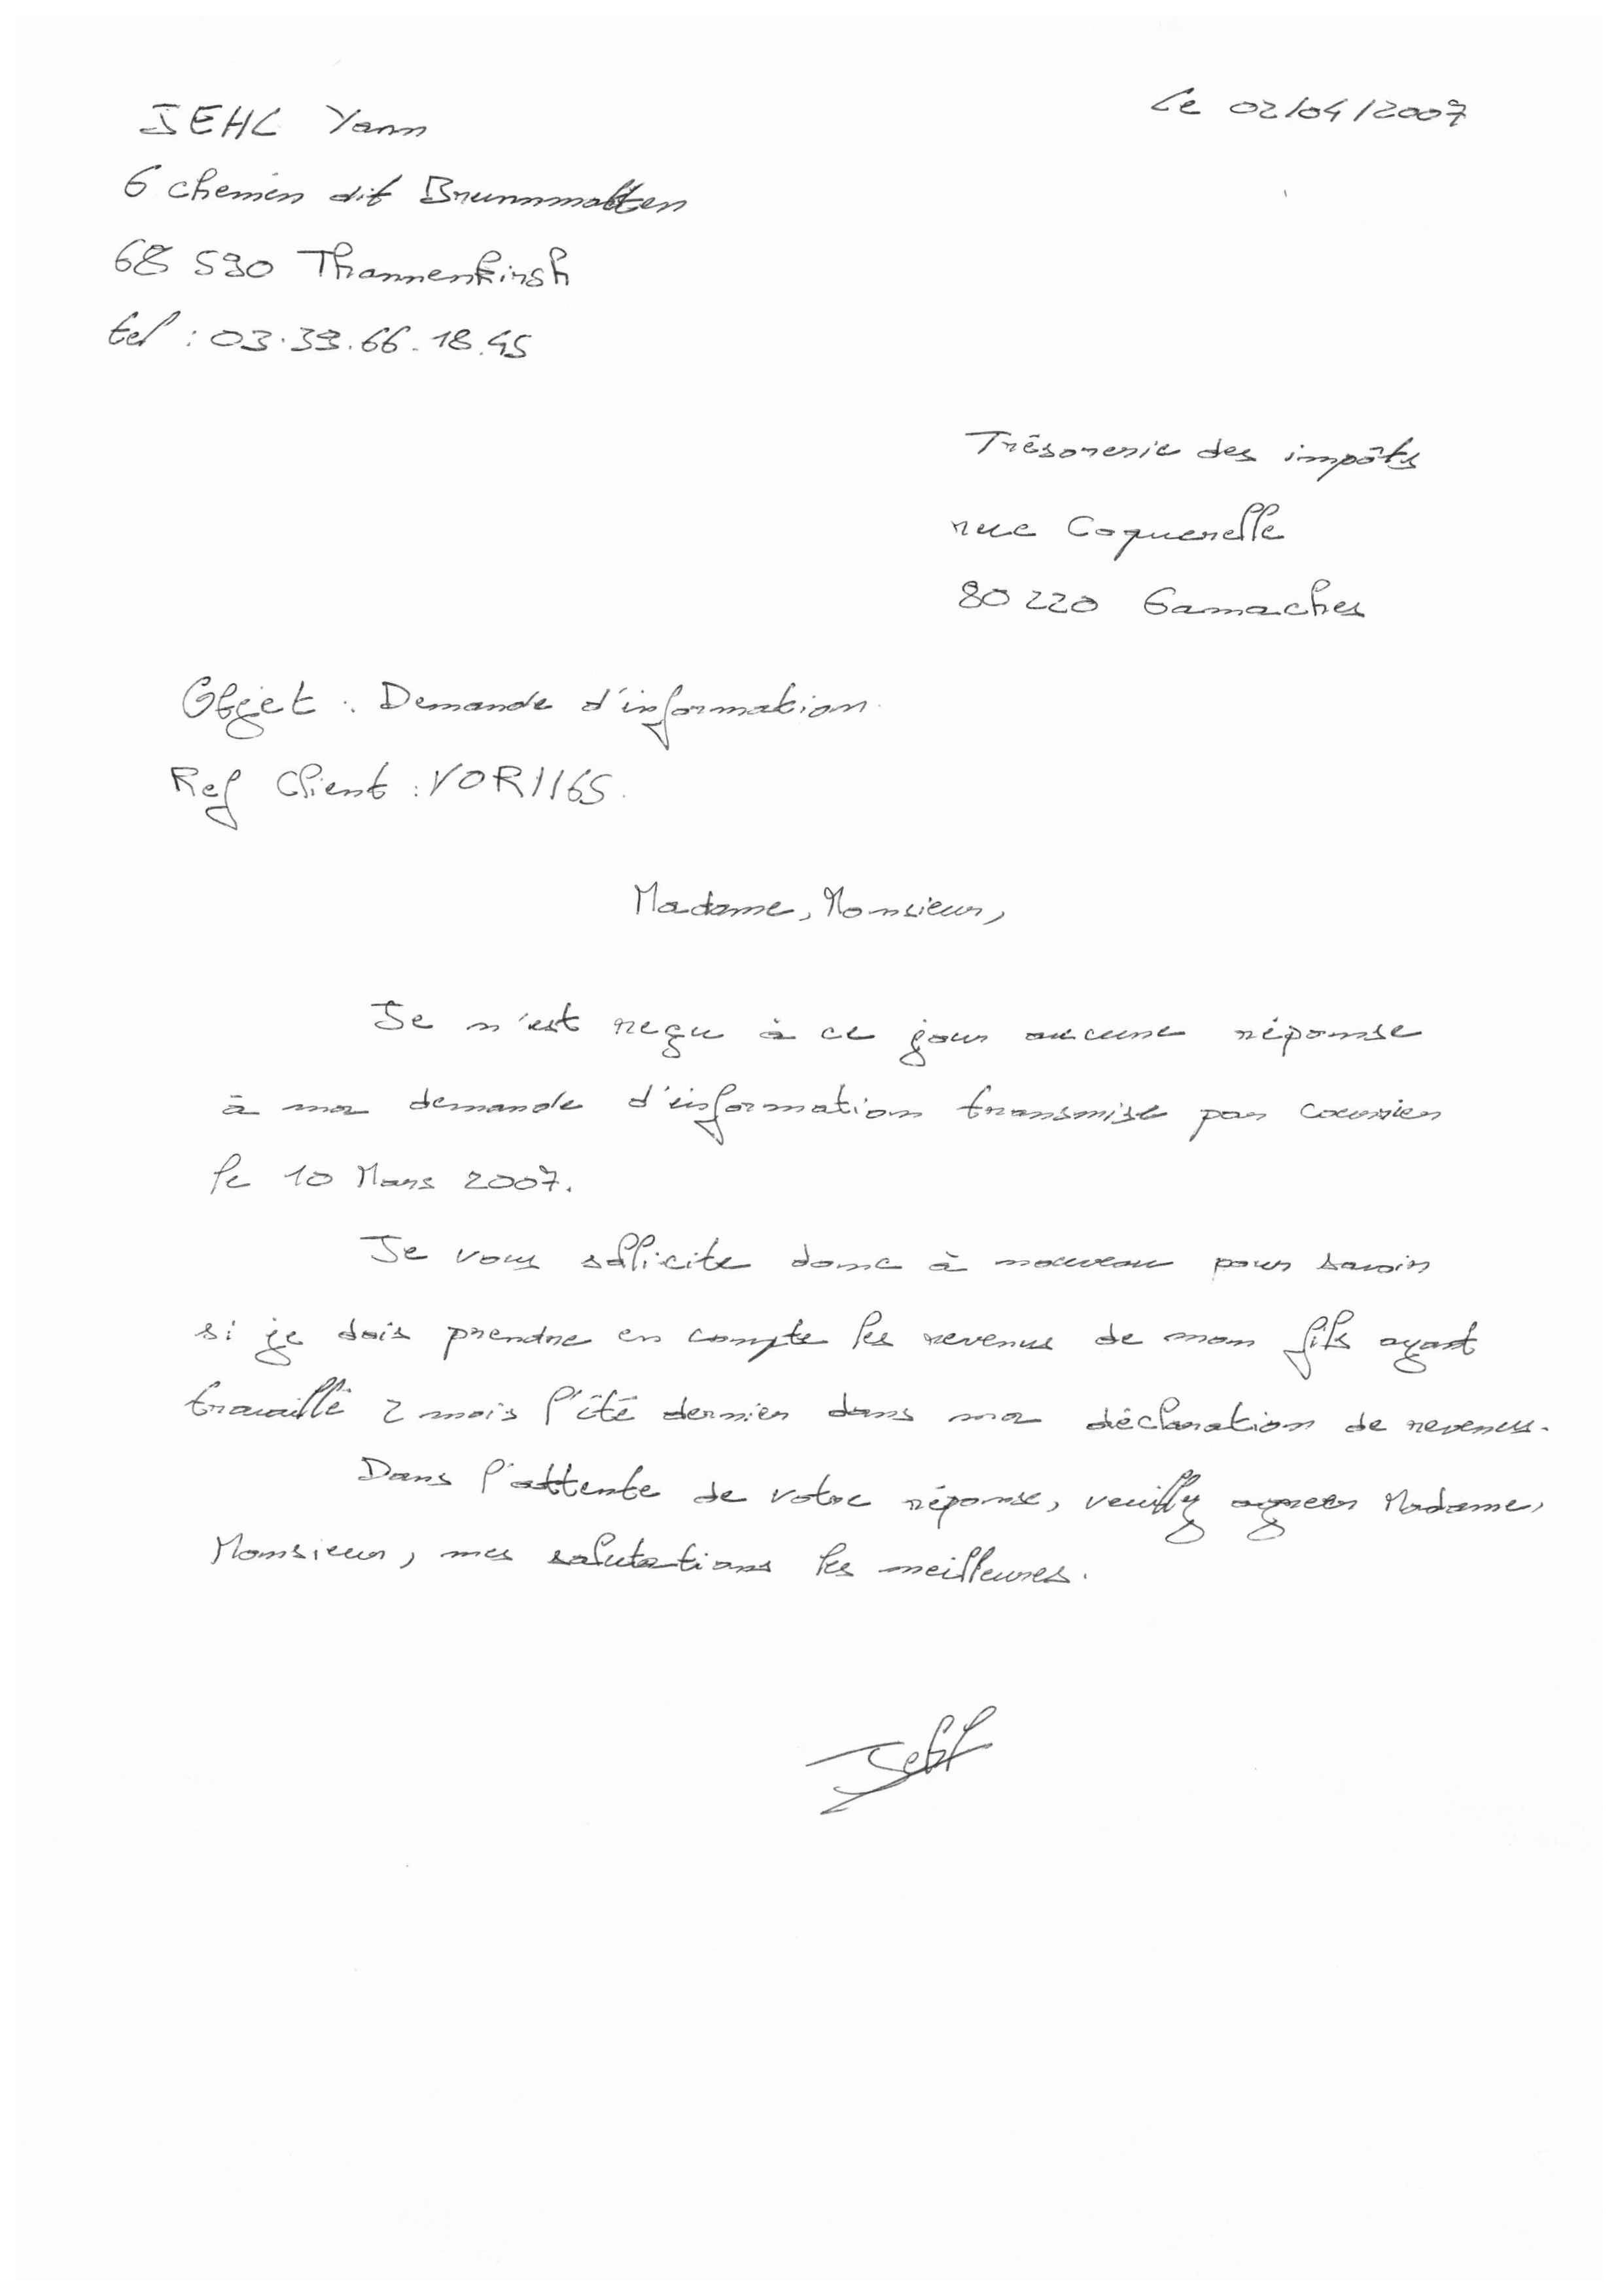 JEHL Yann
Le 02/04/2007
6 chemin dit Brunnmatten
68 590 Thannenkirsh
tel : 03.39.66.18.45
Trésorerie des impôts
rue Coquerelle
80 220 Gamaches
Objet : Demande d'information.
Ref Client : VOR1165.
Madame, Monsieur,
Je n'est reçu à ce jour aucune réponse
à ma demande d'information transmise par courrier
le 10 Mars 2007.
Je vous sollicite donc à nouveau pour savoir
si je dois prendre en compte les revenus de mon fils ayant
travaillé 2 mois l'été dernier dans ma déclaration de revenus.
Dans l'attente de votre réponse, veuillez agreer Madame,
Monsieur, mes salutations les meilleures.
Jehl